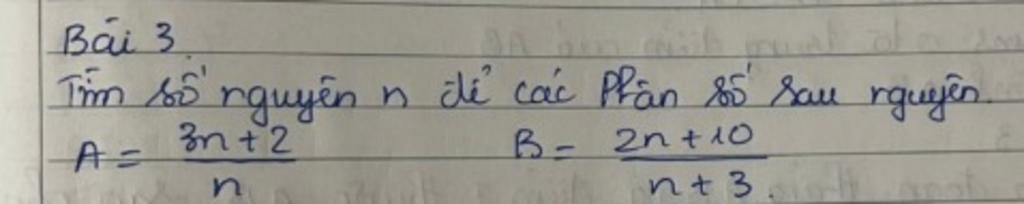 Bài 3.
Tìm số nguyên n để các Phân số sau nguyên.
A = \frac{3n+2}{n} B = \frac{2n+10}{n+3}.